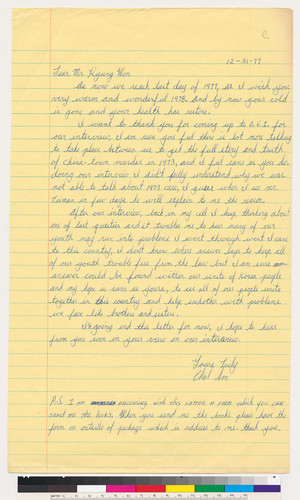 C
12-31-77
Dear Mr. Kyung Won
As now we reach last day of 1977, as I wish you
very warm and wonderful 1978. And by now your cold
is gone and your health has restore.
I want to thank you for coming up to D.V.I. for
our interview, I am sure you feel there is lot more talking
to take place between us to get the full story and truth
of China-town murder in 1973, and I feel same as you
doing our interview I didn't fully understand why we was
not able to talk about 1973 case, I guess when I see mr.
in few days he will explain to me the reason.
After our interview, back in my cell I keep thinking about
one of last question and it trouble me to hear many of our
youth may run into problems I went through went I came
to this country, I don't know where answer lays to keep all
of our youth trouble free from the law but I am sure
answer could be found within our unite of Korea people
and my hope is same as yours, to see all of our people unite
together in this country and help another with problems
we face like brothers and sisters.
I'm going end this letter for now, I hope to hear
from you soon on your view on our interview.
Yours Truly
Chol Soo
P.S. I am enclosing with this letter a form which you can
send me the books. When you send me the books please have the
form on outside of package which is address to me. Thank you.